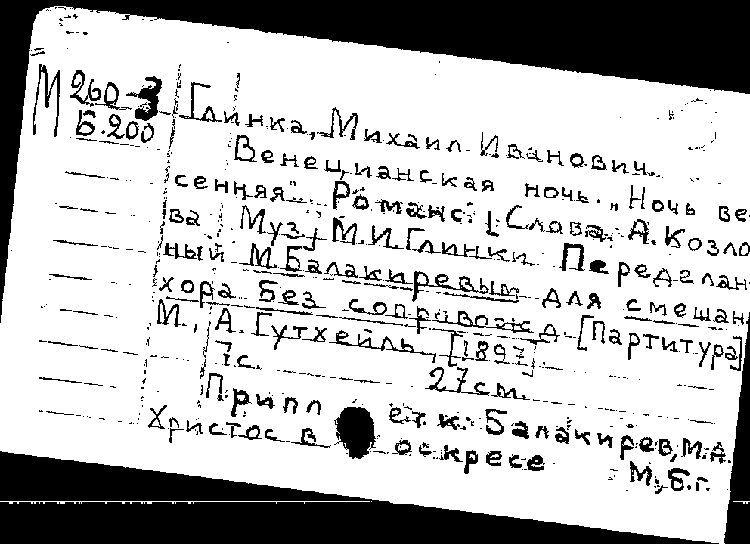 М 260-3
Б.200
Глинка, Михаил Иванович.
Венецианская ночь. „Ночь ве-
сенняя". Романс. [Слова А. Козло-
ва Муз.] М.И. Глинки Переделан-
ный М. Балакиревым для смешан
хора без сопровожд. [Партитура]
М., А. Гутхейль, [1897].
7с. 27см.
Припл ет. к: Балакирев, М.А.
Христос в оскресе М., Б.г.